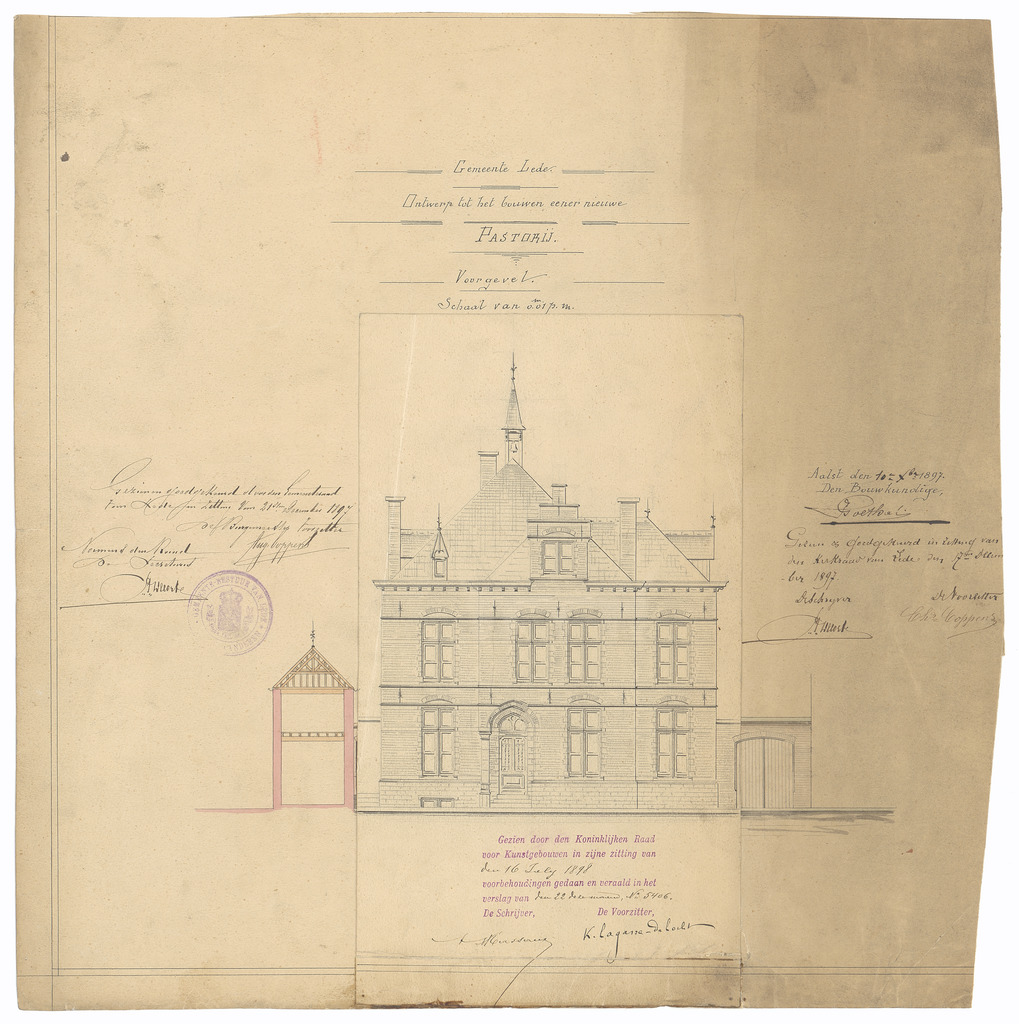 Gemeente Lede.
Ontwerp tot het bouwen eener nieuwe
PASTORIJ.
Voorgevel.
Schaal van 0.m01 p. m.
Gezien en goedgekeurd door den Gemeenteraad
van Lede in zitting van 21en December 1897
De Burgemeester Voorzitter
Namens den Raad
De Secretaris
Aalst den 10en Xber 1897.
Den Bouwkundige,
Goethals
Gezien & Goedgekeurd in zitting van
den Kerkraad van Lede den 17en Decem
ber 1897
De Schrijver
De Voorzitter
Gezien door den Koninklijken Raad
voor Kunstgebouwen in zijne zitting van
den 16 July 1898
voorbehoudingen gedaan en veraald in het
verslag van den 22 dezer maand, No 5406.
De Schrijver, De Voorzitter,
K. Lagasse-de Locht